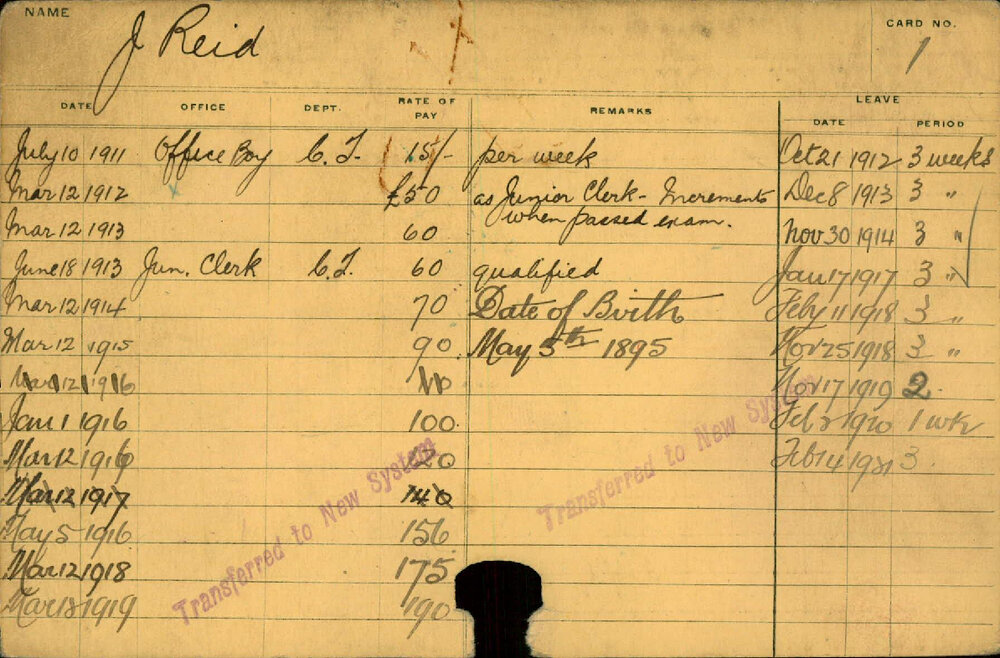 NAME J Reid CARD NO. 1
DATE OFFICE DEPT. RATE OF PAY REMARKS LEAVE
DATE PERIOD
July 10 1911 Office Boy C.T. 15/- per week Oct 21 1912 3 weeks
Mar 12 1912 £50 as Junior Clerk - Increments when passed exam. Dec 8 1913 3 "
Mar 12 1913 60 Nov 30 1914 3 "
June 18 1913 Jun. Clerk C.T. 60 qualified Jan 17 1917 3 "
Mar 12 1914 70 Date of Birth Feby 11 1918 3 "
Mar 12 1915 90 May 5th 1895 Nov 25 1918 3 "
Mar 12 1916 Nov 17 1919 2
Jan 1 1916 100 Feb 1920 1 wk
Mar 12 1916 120 Feb 14 1921 3
Mar 12 1917 140
May 5 1916 156
Mar 12 1918 175
Mar 1919 190
Transferred to New System
Transferred to New System